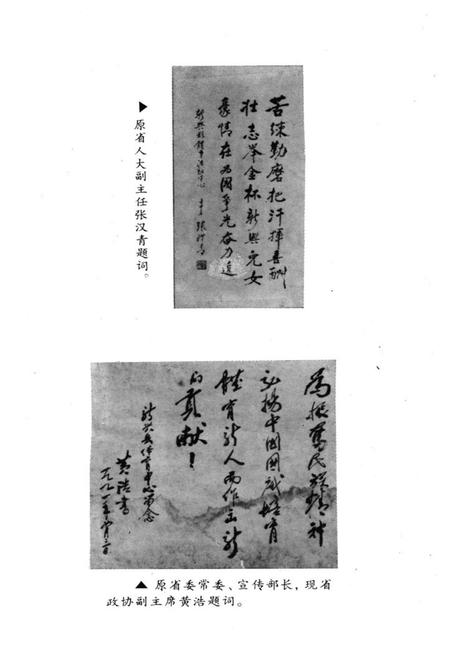 ▶原省人大副主任张汉青题词。
苦练勤磨把汗挥喜酬
壮志举金杯新兴儿女
豪情在为国争光奋力追
张汉青
为振奋民族精神
弘扬中国国威培育
体育新人而作出新
的贡献！
新兴县体育中心留念
黄浩书
一九九一年
▲原省委常委、宣传部长，现省
政协副主席黄浩题词。